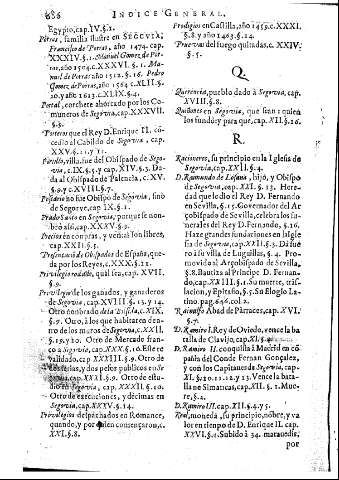 686 INDICE GENERAL.
Egypto, cap. IV. §. 1.
Porras, familia ilustre en SEGOVIA;
Francisco de Porras, año 1474. cap.
XXXIV. §. 1. Manuel Gomez de Porras,
año 1504. c. XXXVI. §. 1. Manuel
de Porras año 1512. §. 16. Pedro
Gomez de Porras, año 1564. c. XLII. §.
20. y año 1613. c. XLIX. §. 4.
Portal, corchete ahorcado por los Comuneros
de Segovia, cap. XXXVII.
§. 3.
Porteros que el Rey D. Enrique II. cõcedio
al Cabildo de Segovia, cap.
XXV. §. 21. y
villa, fue del Obispado de Segovia,
c. IX. §. 5. y cap. XIV. §. 3. Dada
al Obispado de Palencia, c. XV.
§. 9. y c. XVIII. §. 7.
no fue Obispado de, sino
de Segorve, cap IX. §. 1.
Prado Santo en Segovia, porque se nombrò
assi, cap. XXXV. §. 9.
Precio en compras, y ventas son libres,
cap. XXII. §. 5.
Presentacion de Obispados de España, queda
por los Reyes, c. XXX. §. 11.
Privilegio rodado, qual sea, cap. XVII.
§. 9.
Privilegios de los ganados, y ganaderos
de Segovia, cap. XVIII. §. 13. y 14.
Otro nombrado de la c. IX.
§. 7. Otro, à los que habitaren dentro
de los muros de Segovia, c. XXII.
§. 19. y 20. Otro de Mercado franco
a Segovia, cap. XXX. §. 10. Este revalidado,
cap. XXXIII. §. 9. Otro de
y dos pesos publicos en Segovia,
cap. XXXII. §. 9. Otro de estudio
en Segovia, cap. XXXII. §. 10.
Otro de execuciones, y décimas en
Segovia, cap. XXXIV. §. 14.
Privilegios despachados en Romance,
quando, y por quien comenzaron, c.
XXI. §. 8.
Prodigios en Castilla, año 1455. c. XXXI.
§. 8. y año 1463. §. 14.
Pruevas del fuego quitadas, c. XXIV.
§. 5.
Q.
pueblo dado à Segovia, cap.
XVIII. §. 8.
Quiñones en Segovia, que sean y quien
los fundò y para que, cap. XII. §. 16.
R.
Racioneros, su principio en la Iglesia de
Segovia, cap. XXII. §. 4.
D. Raimundo de Losana, hijo, y Obispo
de Segovia, cap. XXI. §. 13. Heredad
que lo dio el Rey D. Fernando
en Sevilla, §. 15. Governador del Arçobispado
de Sevilla, celebra los funerales
del Rey D. Fernando, §. 16.
Haze grandes fundaciones en Iglesia
de Segovia, cap. XXII. §. 3. Dà fuero
à su villa de Luguillas, §. 4. Promovido
al Arçobispado de Sevilla,
§. 8. Bautiza al Principe D. Fernando,
cap. XXIII. §. 1. Su muerte, traslacion,
y Epitafio, §. 7. Su Elogio Latino.
pag. 696. col. 2.
Rainolfo Abad de Parraces, cap. XVI.
§. 7.
D. Ramiro I. Rey de Oviedo, vence la batalla
de Clavijo, cap. XI.
D. Ramiro II. conquista à Madrid en cõpañia
del Conde Fernan Gonçalez,
y con los Capitanes de Segovia, cap.
XI. §. 10. 11. 12. y 13. Vence la batalla
en Simancas, cap. XII. §. 1. Muere,
§. 2.
D. Ramiro III. cap. XII. §. 4. y 5.
Real, moneda, su principio, nõbre, y valor
en tiempo de D. Enrique II. cap.
XXVI. §. 1. Subido à 34. maravedis,
por